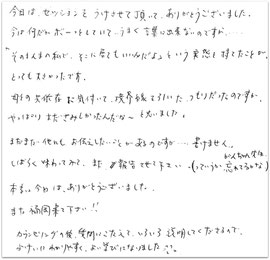 今日は、セッションを うけさせて頂いて、ありがとうございました。
今は何だか ボーッとしていて、うまく言葉に出来ないのですが……
"そのまんまの私で、そこに居てもいいんだよ"という実感を持てたことが、
とってもよかったです。
母との共依存に気付いて、境界線を引いた つもりだったのですが、
やっぱり まださみしかったんだな〜と思いました。
まだまだ他にも お伝えしたいことがあるのですが… 書けません。
しばらく味わってみて、また ご報告させて下さい。(っていうかい 忘れてるかな)
本当に今日は、ありがとうございました。
また福岡来て下さい!!
カウンセリングの後、質問にこたえて、いろいろ説明してくださるので、
とてもわかりやすく、よい学びになりました